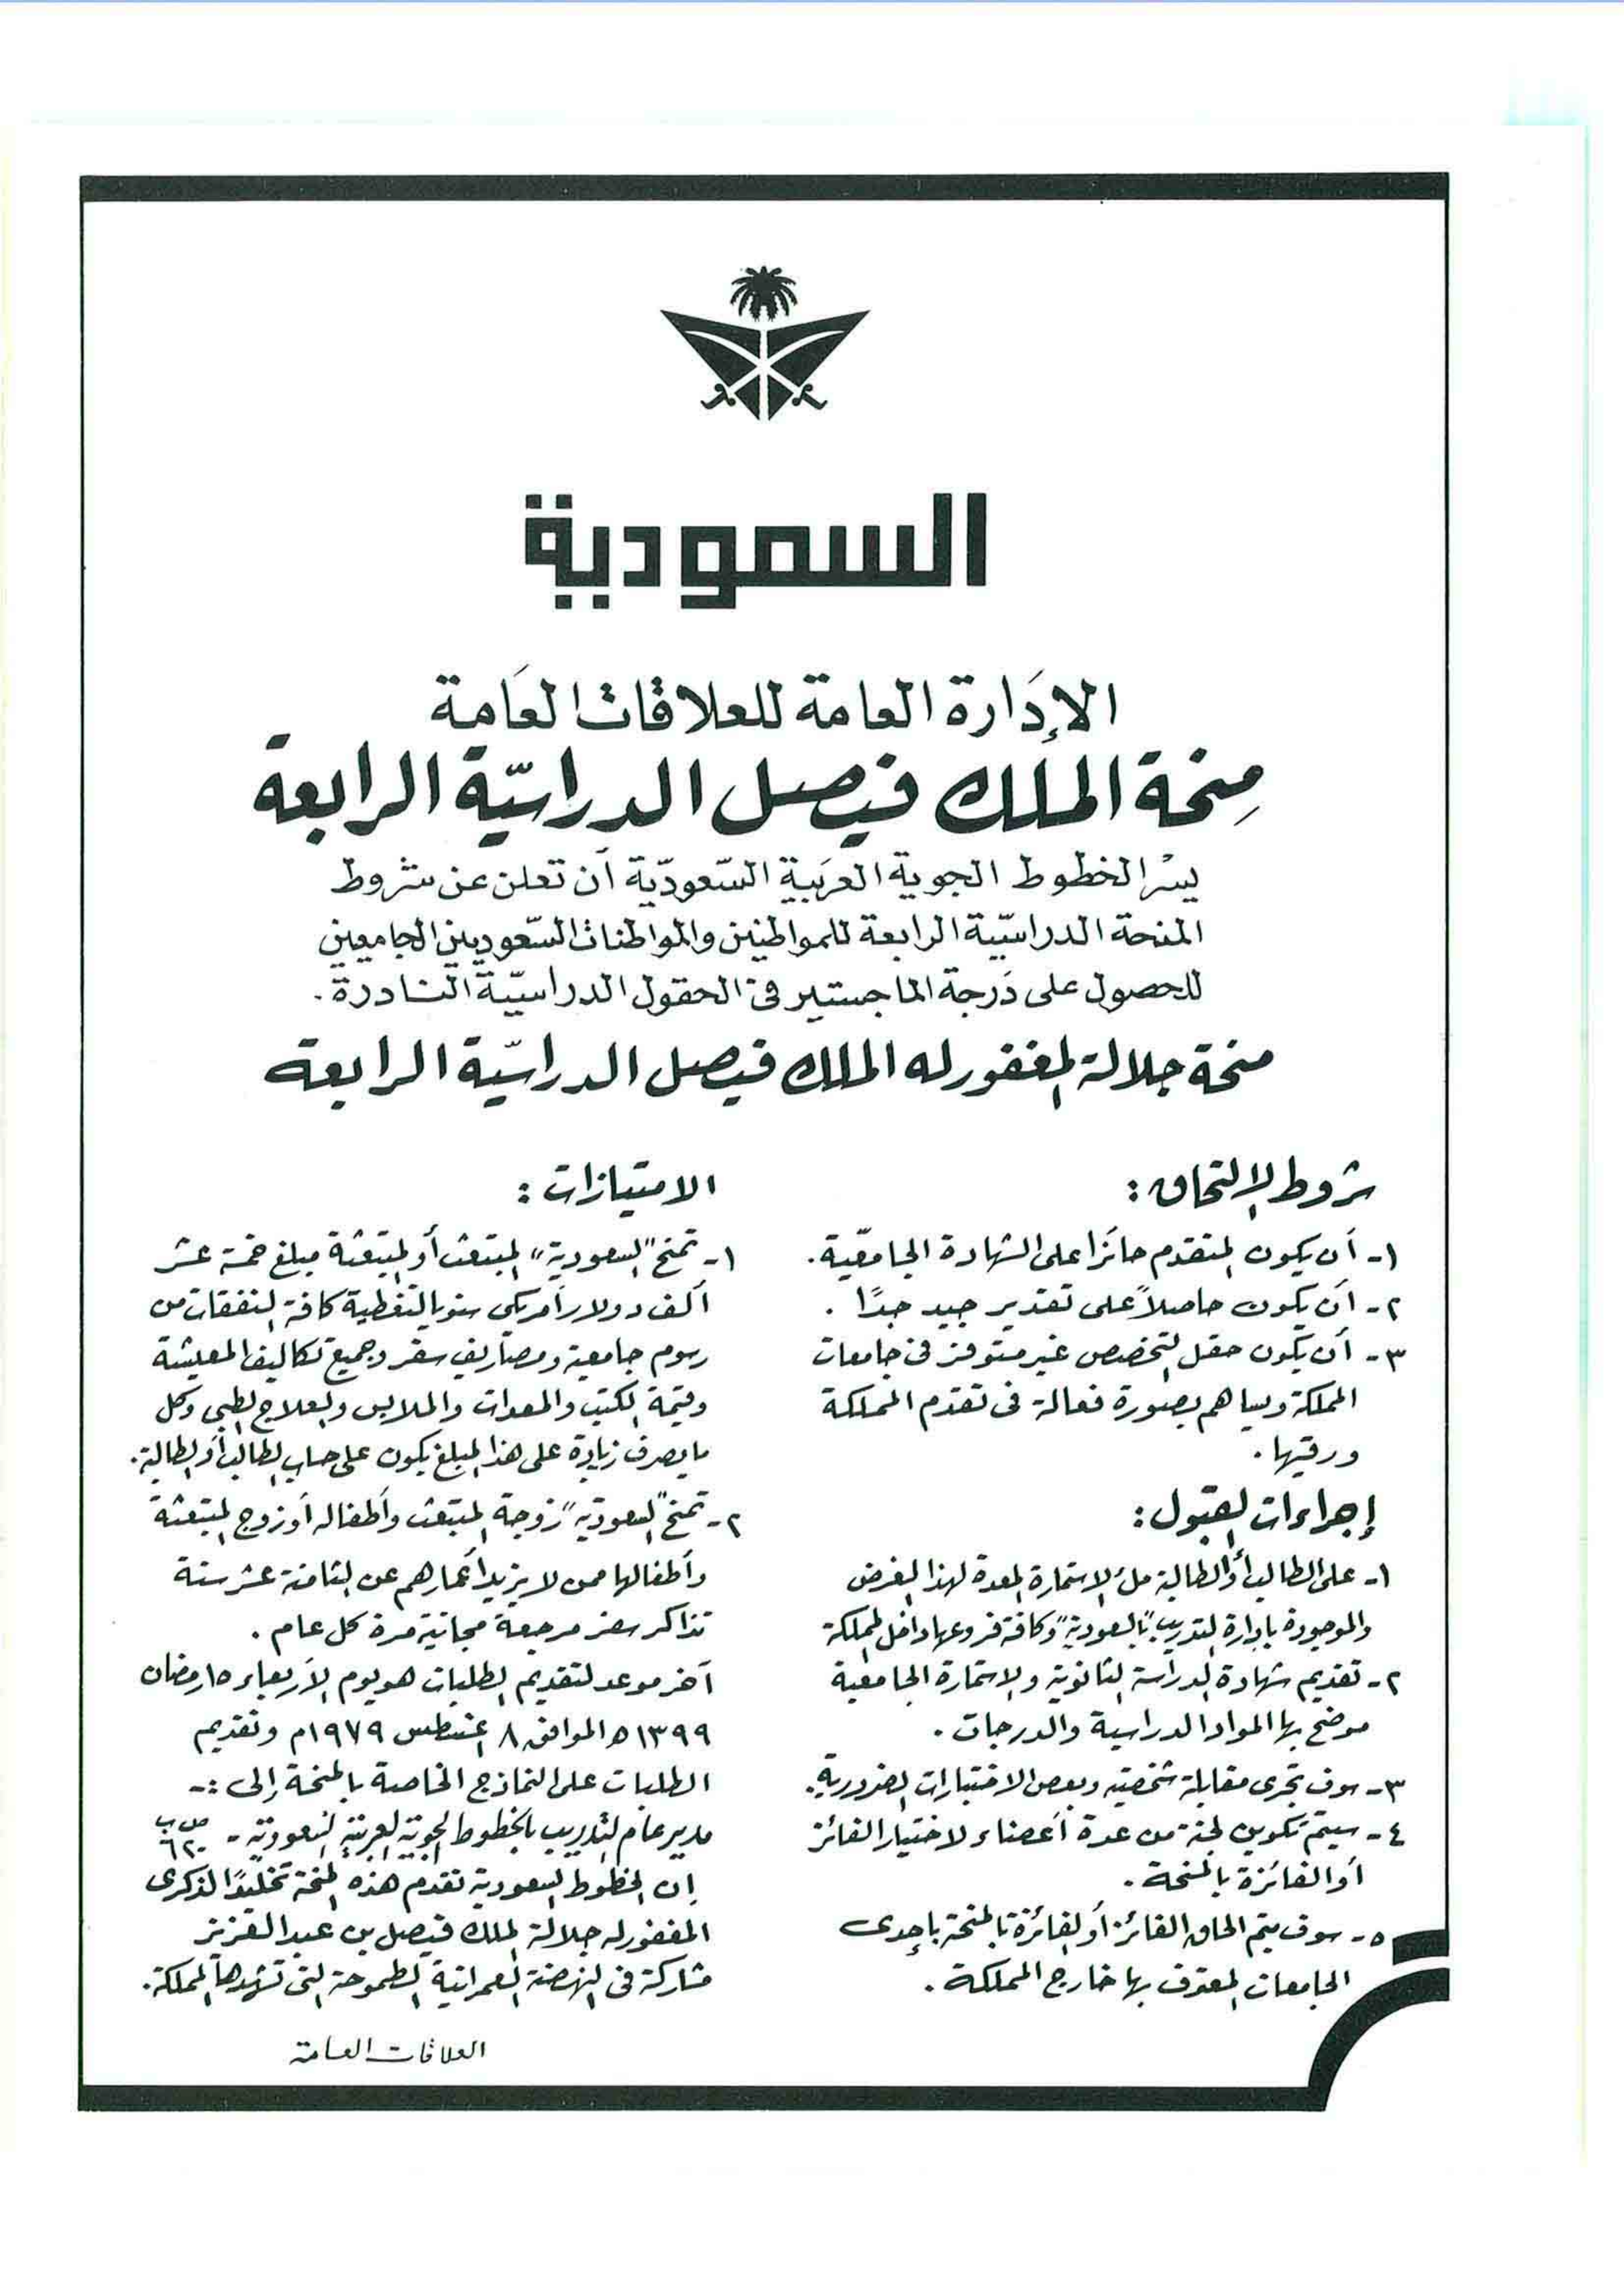 السعودية
الإدارة العامة للعلاقات العامة
منحة الملك فيصل الدراسيّة الرابعة
يسر الخطوط الجوية العربية السّعوديّة أن تعلن عن شروط
المنحة الدراسيّة الرابعة للمواطنين والمواطنات السّعوديين الجامعين
للحصول على درجة الماجستير في الحقول الدراسيّة النادرة.
منحة جلالة المغفور له الملك فيصل الدراسيّة الرابعة
شروط الإلتحاق:
١- أن يكون المتقدم حائزا على الشهادة الجامعية.
٢- أن يكون حاصلاً على تقدير جيد جدًا.
٣- أن يكون حقل التخصص غير متوفر في جامعات
المملكة ويساهم بصورة فعالة في تقدم المملكة
ورقيها.
إجراءات القبول:
١- على الطالب أو الطالبة ملء الإستمارة المعدة لهذا الغرض
والموجودة بإدارة التدريب "بالسعودية" وكافة فروعها داخل المملكة
٢- تقديم شهادة الدراسة الثانوية والإستمارة الجامعية
موضح بها المواد الدراسية والدرجات.
٣- سوف تجرى مقابلة شخصية وبعض الاختبارات الضرورية.
٤- سيتم تكوين لجنة من عدة أعضاء لاختيار الفائز
أو الفائزة بالمنحة.
٥- سوف يتم الحاق الفائز أو الفائزة بالمنحة بإحدى
الجامعات المعترف بها خارج المملكة.
الامتيازات:
١- تمنح "السعودية" المبتعث أو المبتعثة مبلغ خمسة عشر
ألف دولار أمريكي سنويا لتغطية كافة النفقات من
رسوم جامعية ومصاريف سفر وجميع تكاليف المعيشة
وقيمة الكتب والمعدات والملابس والعلاج الطبي وكل
ما يصرف زيادة على هذا المبلغ يكون على حساب الطالب أو الطالبة.
٢- تمنح "السعودية" زوجة المبتعث وأطفاله أو زوج المبتعثة
وأطفالها ممن لا يزيد أعمارهم عن الثامنة عشر سنة
تذاكر سفر مرجعة مجانية مرة كل عام.
آخر موعد لتقديم الطلبات هو يوم الأربعاء ١٥ رمضان
١٣٩٩ه الموافق ٨ اغسطس ١٩٧٩م وتقديم
الطلبات على النماذج الخاصة بالمنحة إلى :-
مدير عام التدريب بالخطوط الجوية العربية السعودية - ص ب ٦٢٠
إن الخطوط السعودية تقدم هذه المنحة تخليدًا لذكرى
المغفور له جلالة الملك فيصل بن عبد العزيز
مشاركة في النهضة العمرانية الطموحة التي تشهدها المملكة.
العلاقات العامة